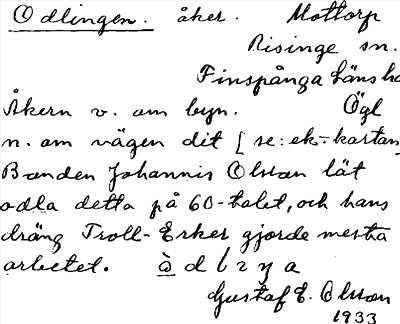 Odlingen. åker. Mottorp
Risinge sn.
Finspånga läns hd
Åkern v. om byn. Ögl
n. om vägen dit [se: ek.-kartan]
Bonden Johannis Olsson lät
odla detta på 60-talet, och hans
dräng Troll-Erker gjorde mesta
arbetet.
Gustaf E. Olsson
1933